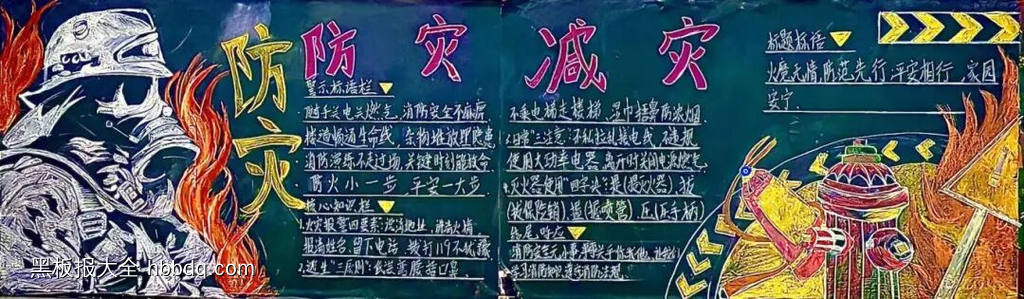 防灾
防灾减灾
警示标语栏
随手关电关燃气,消防安全不麻痹.
楼道畅通生命线,杂物堆放埋隐患
消防演练不走过场,关键时刻能救命
防火小一步 平安一大步.
核心知识栏
1.火灾报警四要素:说清地址、讲清火情
报清姓名、留下电话 拨打119不犹豫
2.逃生"三原则":低姿
捂口鼻
不乘电梯走楼梯、湿巾捂鼻防浓烟.
3.日常"三注意":不私拉乱接电线、不违规
使用大功率电器、离开时关闭电源燃气
4.灭火器使用"四字诀":提(提灭火器)、拔
(拔保险销)、握(握喷管)、压(压手柄)
结尾呼应
消防安全无小事,
学习消防知识 遵守消防法规.
标题标语
火魔无情 防范先行,平安相行,家园
安宁.
黑板报大全 hbbdq.com